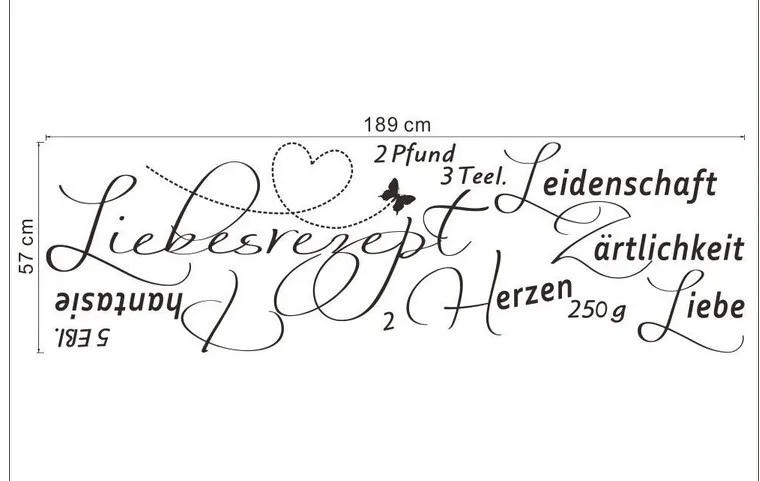 189 cm
57 cm
2 Pfund
Leidenschaft
3 Teel.
Zärtlichkeit
Liebesrezept
2 Herzen
250 g
Liebe
Phantasie
5 Eßl.